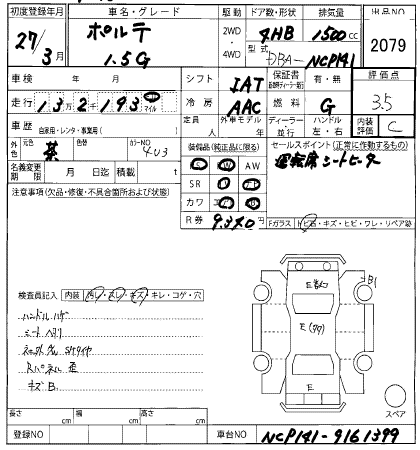 初度登録年月 車名・グレード 駆動 ドア数・形状 排気量 出品NO
27/3月 ポルテ 1.5G 2WD・4WD 4HB 1500cc 2079
型式 DBA- NCP141
車検 年 月 シフト IAT 保証書 有・無 評価点
走行 13万2千193 km マイル 冷房 AAC 燃料 G 3.5
車歴 自家用・レンタ・事業用( ) 定員 人 外車モデル 年 ディーラー・並行 ハンドル 左・右 内装評価 C
外色 元色 茶 色替 カラーNO 4U3 装備品(純正品に限る) セールスポイント(正常に作動するもの)
運転席シートヒーター
名義変更期限 月 日迄 積載 t SR カワ AW
注意事項(欠品・修復・不具合箇所および状態)
R券 9,340円 Fガラス ヒ石・キズ・ヒビ・ワレ・リペア跡
検査員記入 内装 汚レ・スレ・キズ・キレ・コゲ・穴
ハンドルハゲ
シートヘタリ
キズB.
B1
E
E
E
スペア
長さ cm 幅 cm 高さ cm
登録NO 車台NO NCP141-9161399